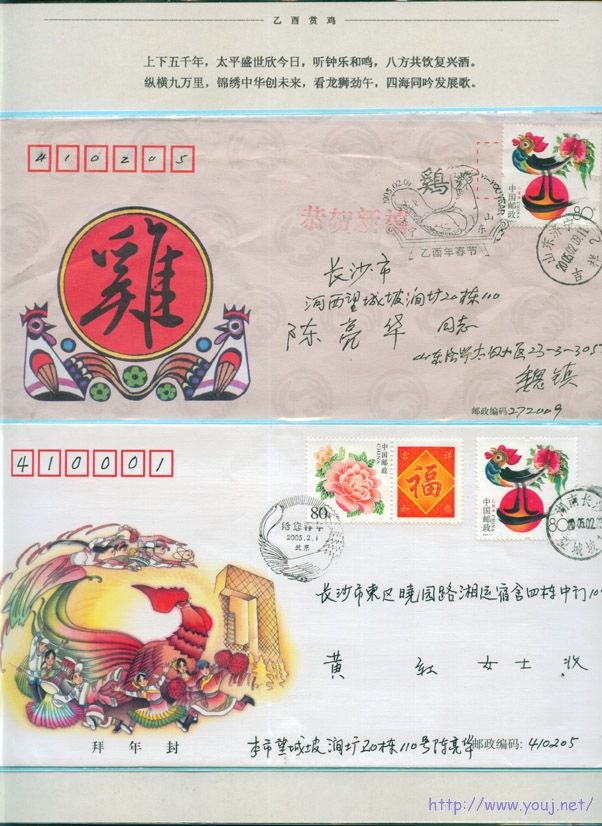 乙酉赏鸡
上下五千年，太平盛世欣今日，听钟乐和鸣，八方共饮复兴酒。
纵横九万里，锦绣中华创未来，看龙狮劲午，四海同吟发展歌。
410205
恭贺新禧
2005.02.09
鷄
山东
乙酉年春节
中国邮政
CHINA
80
山东济
2005.02.09.11
雞
长沙市
河西望城坡涧圢20栋110
陈亮华 同志
23-3-305
魏镇
邮政编码272009
410001
中国邮政
CHINA
80
吉祥
福
如意
2005.2.1
北京
中国邮政
CHINA
80
湖南长沙
2005.02
长沙市东区晓园路湘运宿舍四栋中门10
黄红女士收
拜年封
本市望城坡涧圢20栋110号陈亮华 邮政编码：410205
http://www.youj.net/